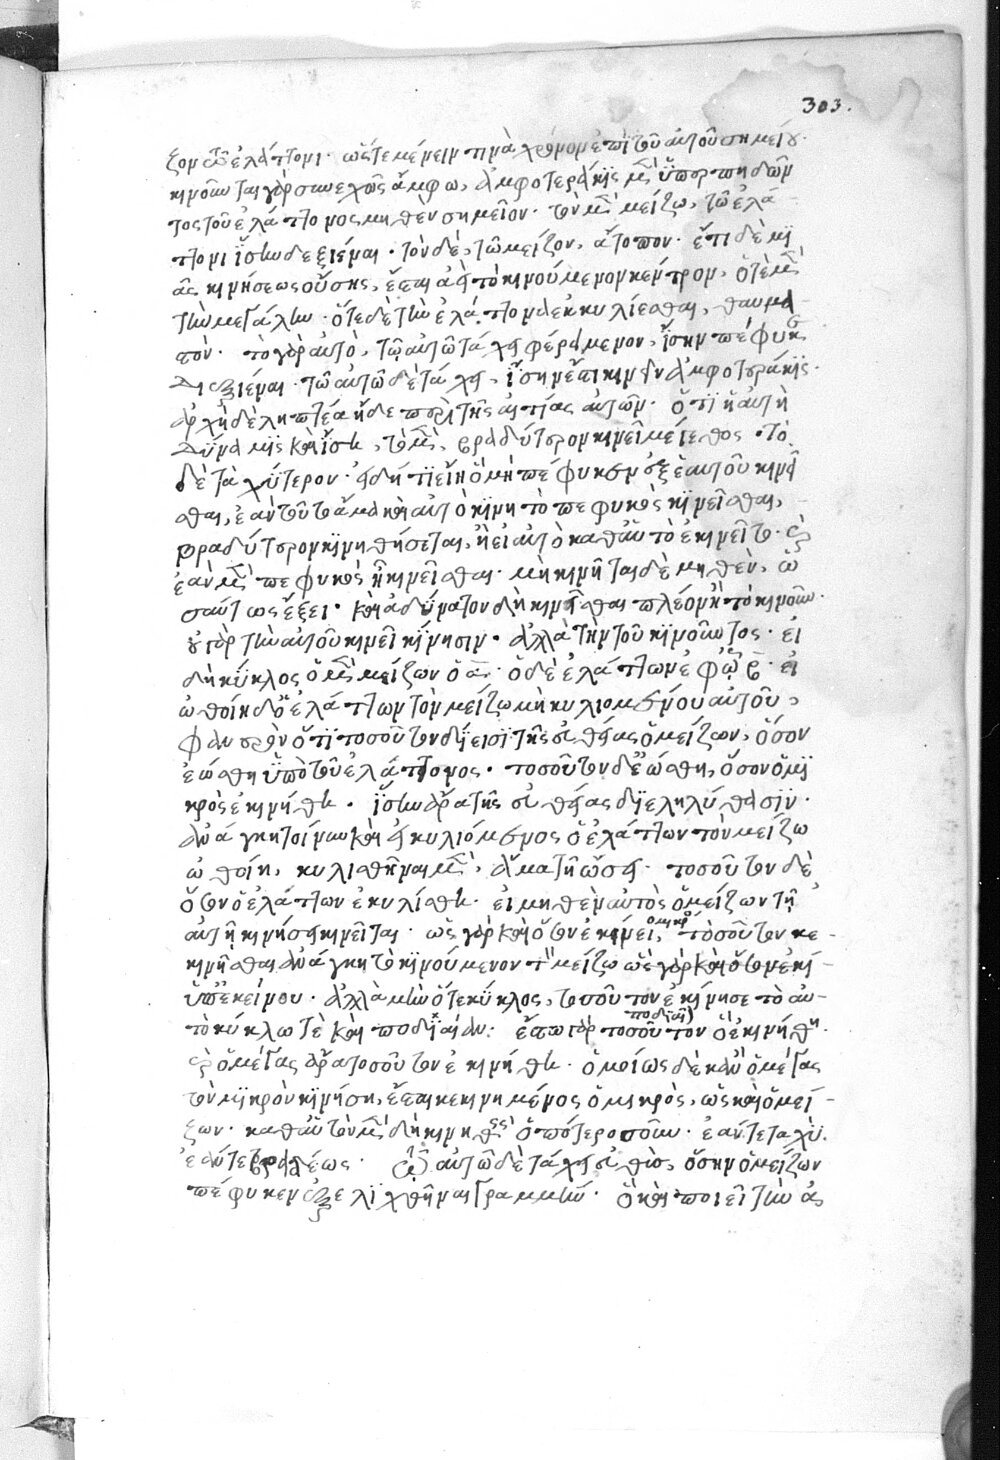 303.
ζον τῶ ἐλάττονι· ὥστε μένειν τινὰ χρόνον ἐπὶ τοῦ αὐτοῦ σημείου·
κινοῦνται γὰρ συνεχῶς ἄμφω, ἀμφοτεράκις μὴ ὑπερπηδῶν
τος τοῦ ἐλάττονος μηθὲν σημεῖον· τὸν μὲν μείζω, τῶ ἐλά-
ττονι ἴσην διεξιέναι· τὸν δὲ, τῶ μείζονι, ἄτοπον· ἔτι δὲ μι
ᾶς κινήσεως οὔσης, ἀεὶ τὸ κινούμενον κέντρον, ὁτὲ μὲν
τὴν μεγάλην· ὁτὲ δὲ τὴν ἐλάττονα ἐκκυλίεσθαι, θαυμα
στόν· τὸ γὰρ αὐτὸ, τῶ αὐτῶ τάχει φερόμενον, ἴσην πέφυκε
διεξιέναι· τῶ αὐτῶ δὲ τάχει, ἴσην ἐστὶ κινεῖν ἀμφοτεράκις·
ἀρχὴ δὲ ληπτέα ἥδε περὶ τῆς αἰτίας αὐτῶν· ὅτι ἡ αὐτὴ
δύναμις καὶ ἴση, τὸ μὲν, βραδύτερον κινεῖ μέγεθος· τὸ
δὲ ταχύτερον· εἰ δή τι εἴη ὃ μὴ πέφυκεν ἐξ ἑαυτοῦ κινεῖ
σθαι, ἐὰν τοῦτο ἅμα καὶ αὐτὸ κινῆ τὸ πεφυκὸς κινεῖσθαι,
βραδύτερον κινηθήσεται, ἢ εἰ αὐτὸ καθ' αὑτὸ ἐκινεῖτο· καὶ
ἐὰν μὲν πεφυκὸς ἦ κινεῖσθαι· μὴ κινῆται δὲ μηθὲν, ὡ
σαύτως ἕξει· καὶ ἀδύνατον δὴ κινεῖσθαι πλέον ἢ τὸ κινοῦν·
οὐ γὰρ τὴν αὑτοῦ κινεῖ κίνησιν· ἀλλὰ τὴν τοῦ κινοῦντος· εἰ
δὴ κύκλος ὁ μὲν μείζων ὁ α· ὁ δὲ ἐλάττων ἐφ' ᾧ β· εἰ
ὠθοίη δ' ὁ ἐλάττων τὸν μείζω μὴ κυλιομένου αὐτοῦ,
φανερὸν ὅτι τοσοῦτον δίεισι τῆς εὐθείας ὁ μείζων, ὅσον
ἐώσθη ὑπὸ τοῦ ἐλάττονος· τοσοῦτον δὲ ἐώσθη, ὅσον ὁ μι
κρὸς ἐκινήθη· ἴσην ἄρα τῆς εὐθείας διεληλύθασιν·
ἀνάγκη τοίνυν καὶ εἰ κυλιόμενος ὁ ἐλάττων τὸν μείζω
ὠθοίη, κυλισθῆναι μὲν, ἅμα τῆ ὤσει· τοσοῦτον δὲ
ὅσον ὁ ἐλάττων ἐκυλίσθη· εἰ μηθὲν αὐτὸς ὁ μείζων τῆ
αὐτῆ κινήσει κινεῖται· ὡς γὰρ καὶ ὅσον ἐκίνει, ὁ μικρὸς τοσοῦτον κε-
κινῆσθαι ἀνάγκη τὸ κινούμενον τὸ μείζω ὡς γὰρ καὶ ὅσον ἐκί-
ὑπ' ἐκείνου· ἀλλὰ μὴν ὅτε κύκλος, τοσοῦτον ἐκίνησε τὸ αὐ-
τὸ κύκλω τὲ καὶ ποδιαίαν: ἔστω γὰρ τοσοῦτον ὃ ἐκινήθη·
καὶ ὁ μέγας ἄρα τοσοῦτον ἐκινήθη· ὁμοίως δὲ κἂν ὁ μέγας
τὸν μικρὸν κινήση, ἔσται κεκινημένος ὁ μικρὸς, ὡς καὶ ὁ μεί-
ζων· καθ' αὑτὸν μὲν δὴ κινηθεὶς ὁποτεροσοῦν· ἐάν τε ταχὺ·
ἐάν τε βραδέως· τῶ αὐτῶ δὲ τάχει εὐθὺς, ὅσην ὁ μείζων
πέφυκεν ἐξελιχθῆναι γραμμήν· ὃ καὶ ποιεῖ τὴν ἀ